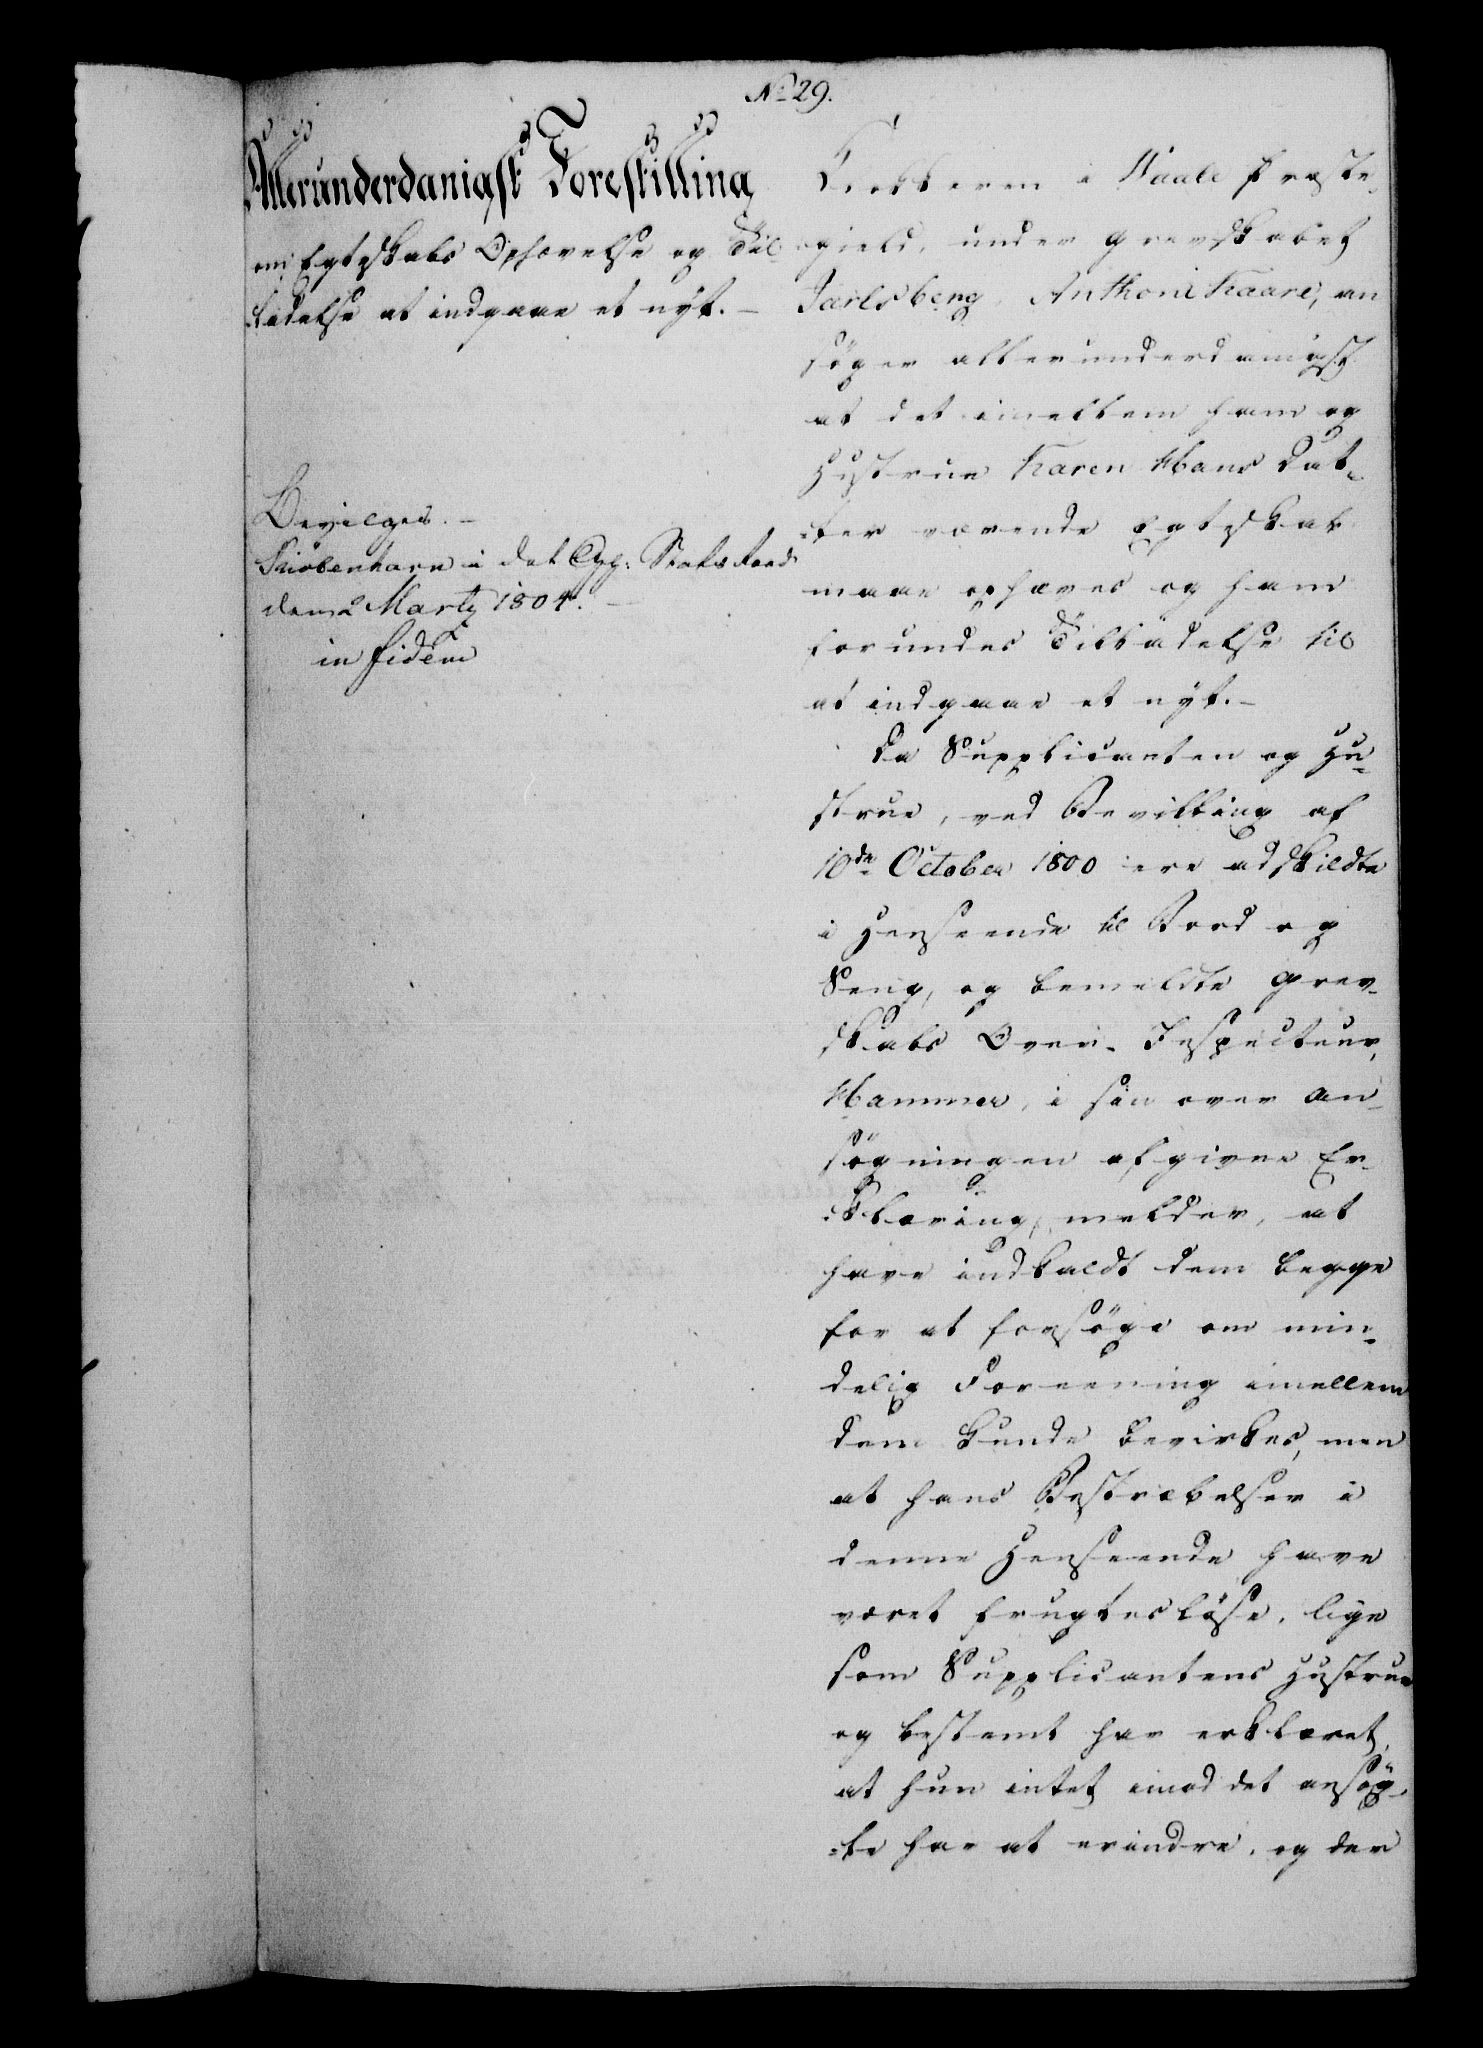 No 29.
Allerunderdanigst Forestilling
om Egteskabs Ophævelse og Til-
ladelse at indgaae et nyt. –
Bevilges. –
Kiøbenhavn i det Kgl: StatsRaad
den 2 Marty 1804. –
in fidem
Klokkeren i Vaale Præste-
gield, under Grevskabet
Jarlsberg Anthoni Kaare, an
søger allerunderdanigst
at det imellem ham og
Hustrue Karen Hans Dat-
ter værende Egteskab
maae ophæves og ham
forundes Tilladelse til
at indgaae et nyt. –
Da Supplicanten og Hu-
strue, ved Bevilling af
10de October 1800 ere adskildte
i Henseende til Bord og
Seng, og bemeldte Grev-
skabs Over-Inspecteur,
Hammer, i sin over An-
søgningen afgivne Er-
klæring, melder, at
have indkaldt dem begge
for at forsøge om min-
delig Foreening imellem
dem kunde bevirkes, men
at hans Bestræbelser i
denne Henseende have
været frugtesløse, lige
som Supplicantens Hustrue
og bestemt har erklæret,
at hun intet imod det ansøg-
te har at erindre, og der